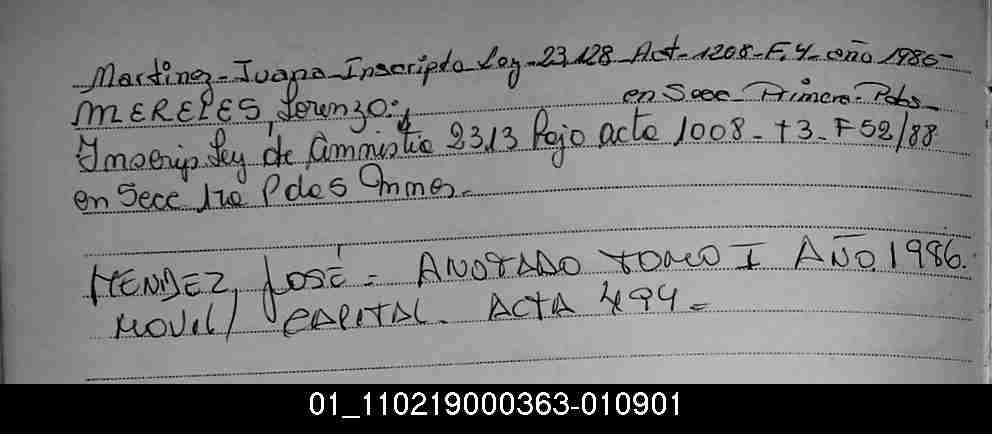 Martinez - Juana - Inscripto Ley - 23,128 - Act - 1208 - F. 4 - año 1986 -
en Secc - Primera - Pobs -
MERELES, Lorenzo:,
Inscrip Ley de Amnistia 23,13 Bajo acta 1008 - t 3 - F 52/88
en Secc 1ra Pdes Inmer -
MENDEZ, JOSÉ = ANOTADO TOMO I AÑO 1986.
MOVIL / CAPITAL. ACTA 494 =
01_110219000363-010901